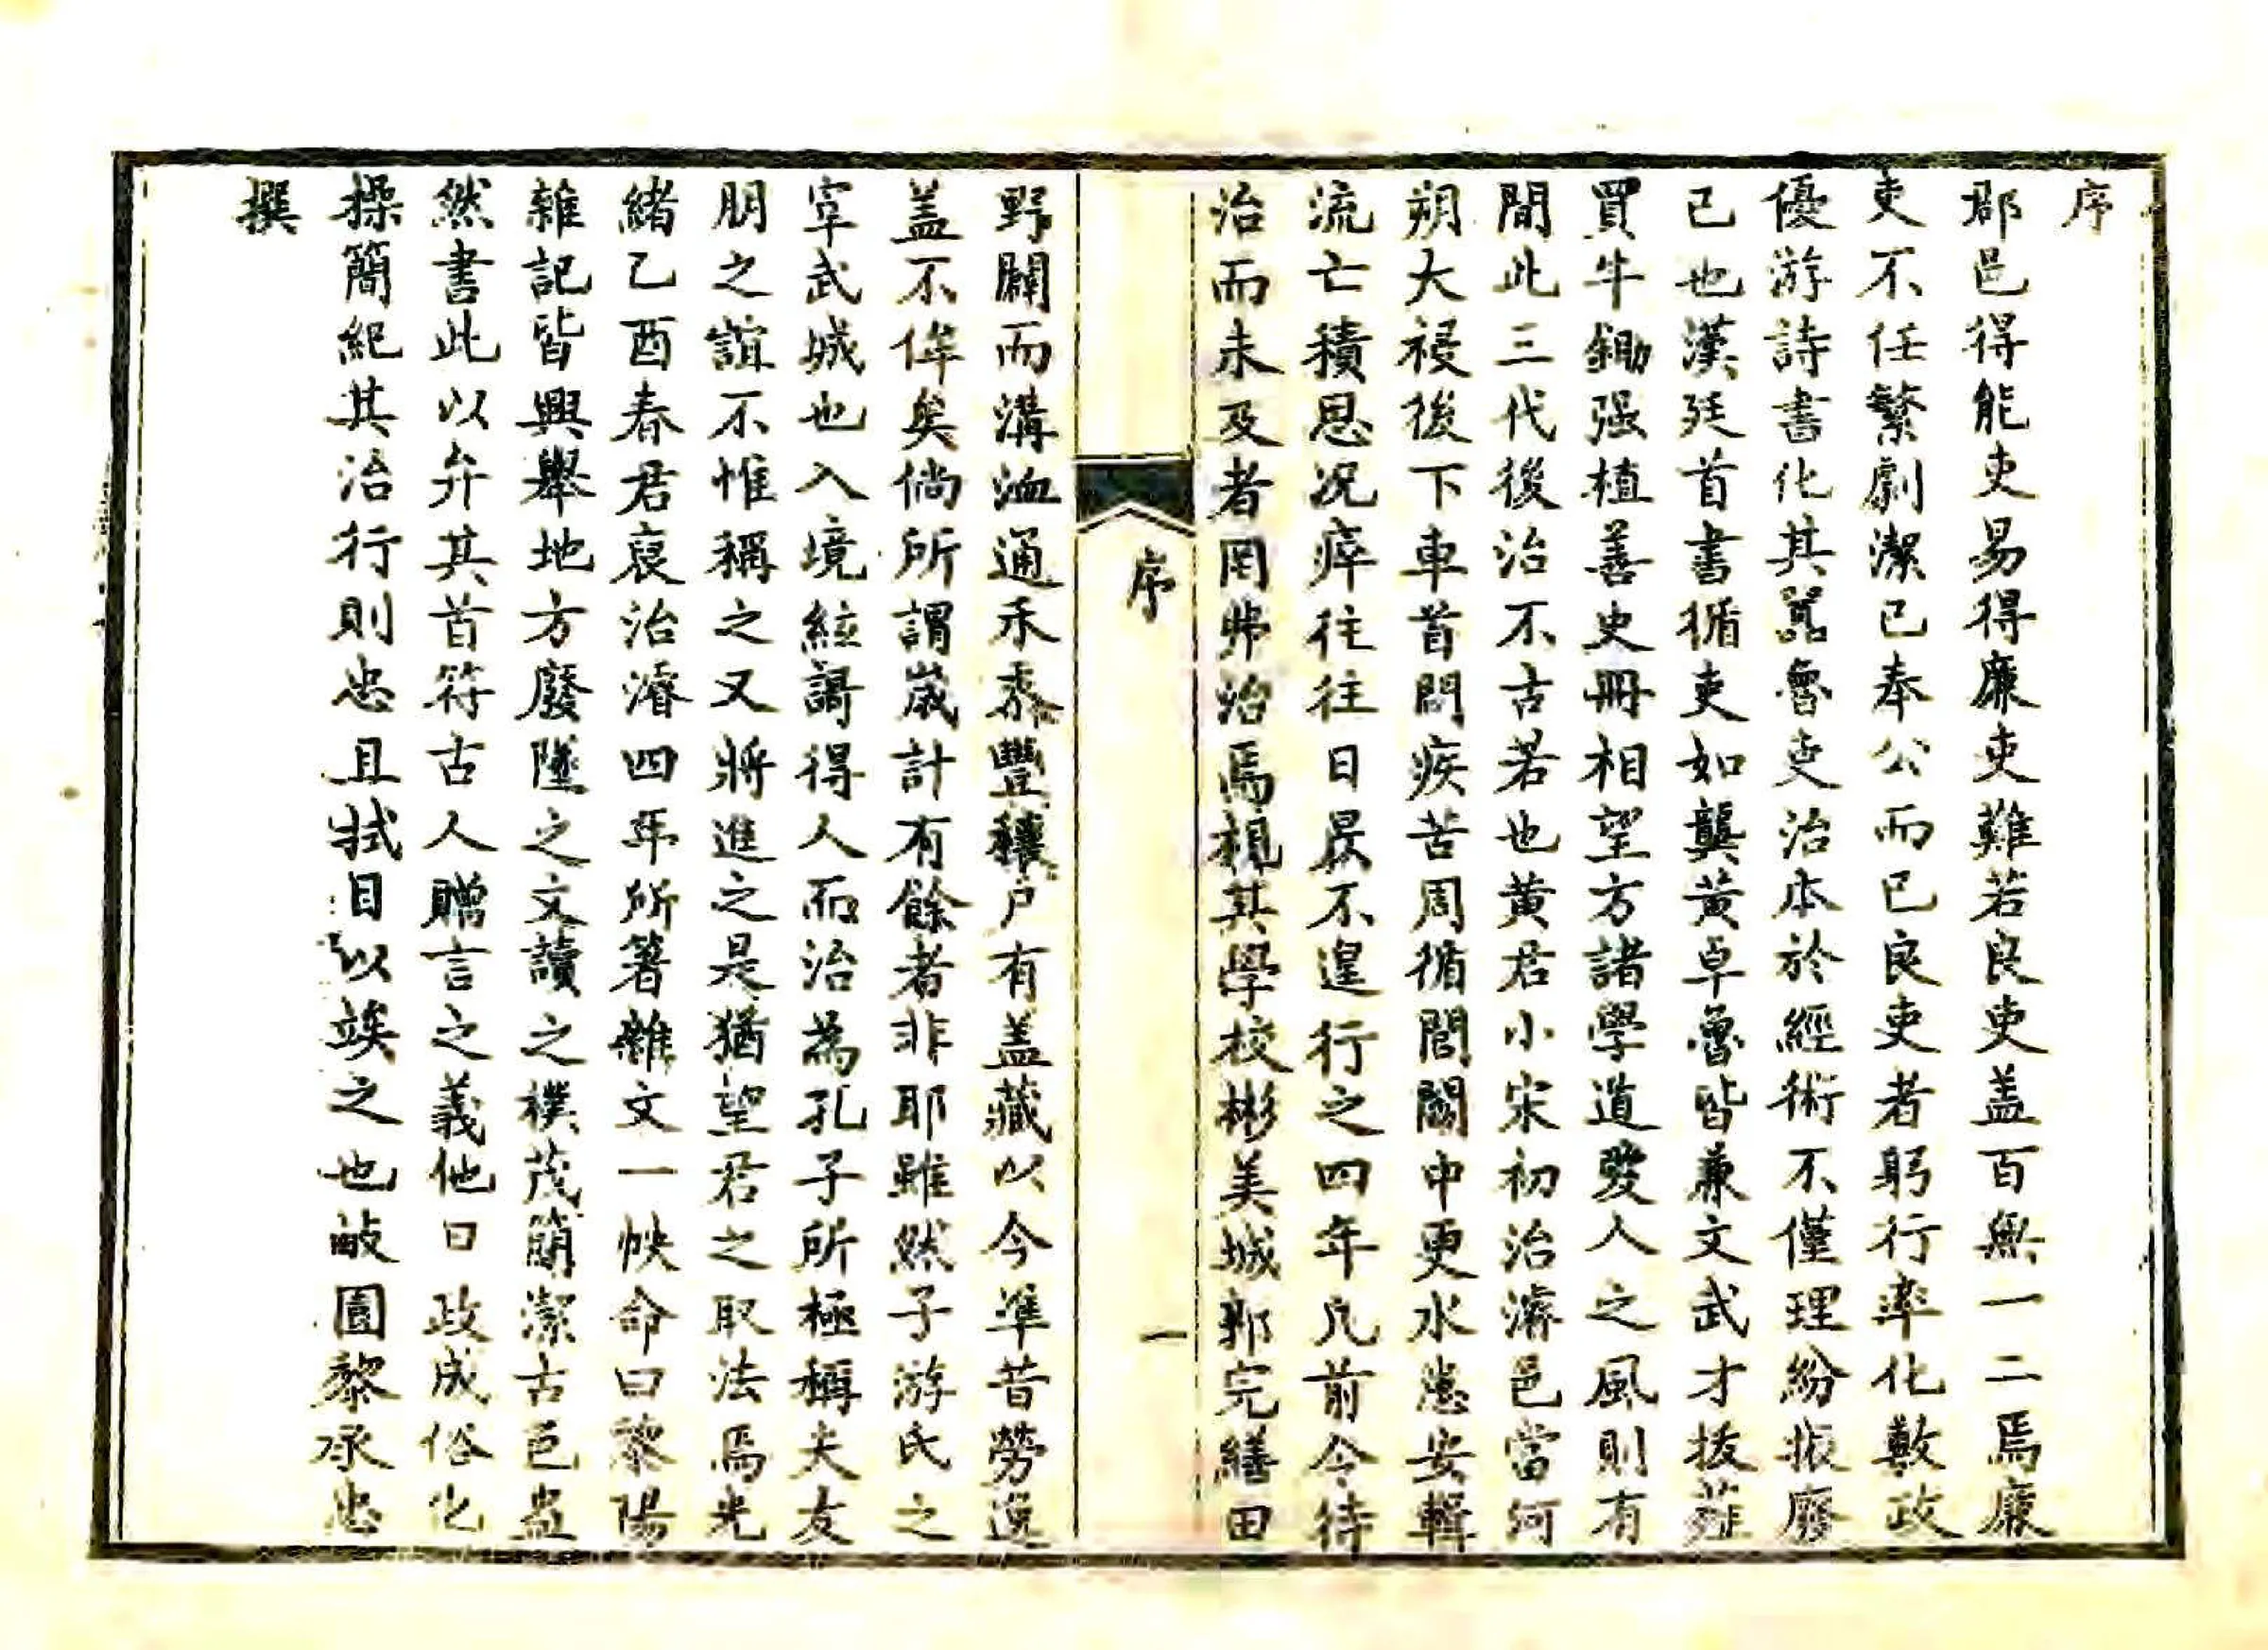 序
郡邑得能吏易得廉吏難若良吏盖百無一二焉廉
吏不任繁劇潔己奉公而已良吏者躬行率化敷政
優游詩書化其嚚魯吏治本於經術不僅理紛振廢
已也漢廷首書循吏如龔黃卓魯皆兼文武才拔薤
買牛鋤强植善史冊相望方諸學道愛人之風則有
間此三代後治不古若也黃君小宋初治濬邑當河
朔大祲後下車首問疾苦周循閭閻中更水患安輯
流亡積思况瘁往往日昃不遑行之四年凡前令待
治而未及者罔弗治焉視其學校彬美城郭完繕田
序
一
野闢而溝洫通禾黍豐穰户有盖藏以今準昔勞逸
盖不侔矣倘所謂歲計有餘者非耶雖然子游氏之
宰武城也入境絃謌得人而治為孔子所極稱夫友
朋之誼不惟稱之又將進之是猶望君之取法焉光
緒乙酉春君裒治濬四年所著雜文一帙命曰黎陽
雜記皆興舉地方廢墜之文讀之樸茂簡潔古色盎
然書此以弁其首符古人贈言之義他日政成俗化
操簡紀其治行則忠且拭目以竢之也敀園黎承忠
撰